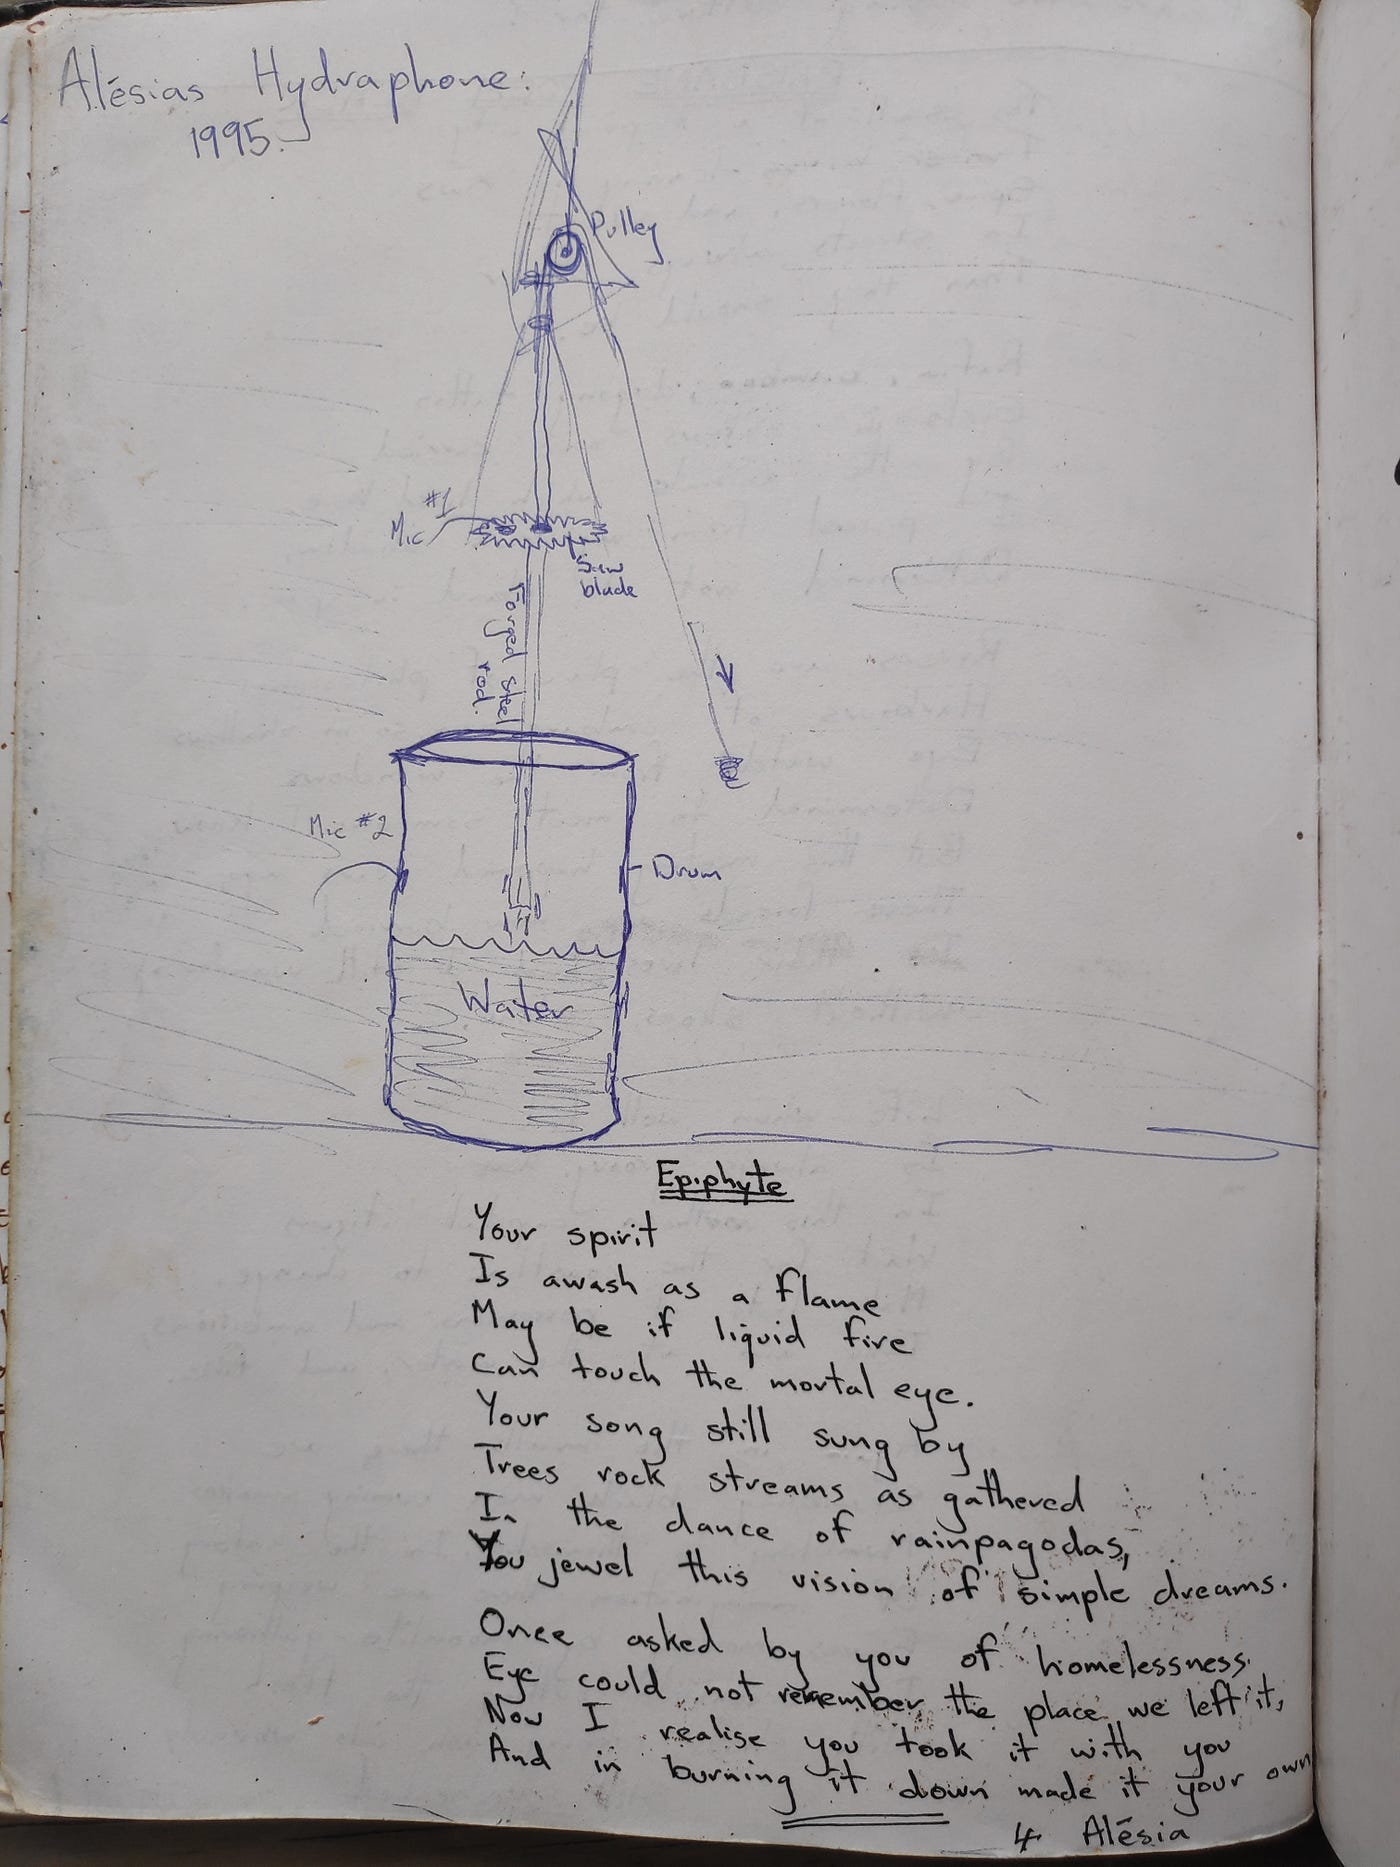 Alésias Hydraphone:
1995.
Pulley
#1
Mic
Saw
blade
Forged steel
rod.
Mic #2
Drum
Water
Epiphyte
Your spirit
Is awash as a flame
May be if liquid fire
Can touch the mortal eye.
Your song still sung by
Trees rock streams as gathered
In the dance of rainpagodas,
You jewel this vision of simple dreams.
Once asked by you of homelessness
Eye could not remember the place we left it,
Now I realise you took it with you
And in burning it down made it your own
4 Alésia